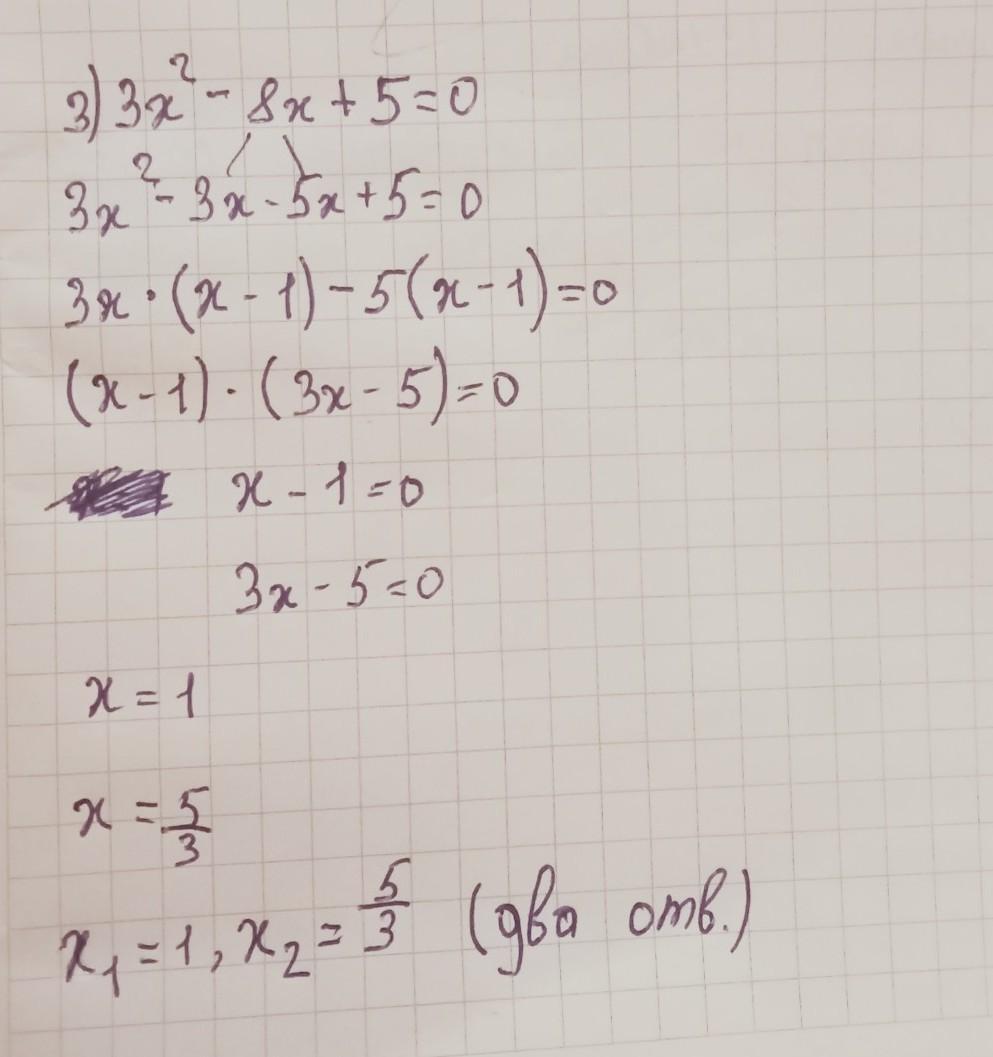 3) 3x² - 8x + 5 = 0
3x² - 3x - 5x + 5 = 0
3x · (x - 1) - 5(x - 1) = 0
(x - 1) · (3x - 5) = 0
x - 1 = 0
3x - 5 = 0
x = 1
x = 5/3
x₁ = 1, x₂ = 5/3 (два отв.)